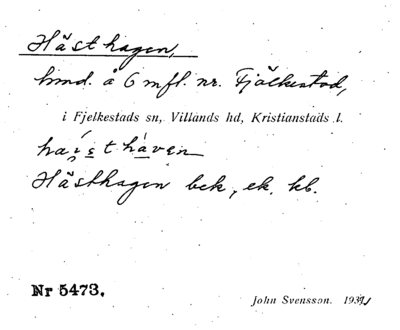 Hästhagen,
hmd. å 6 mfl. nr. Fjälkestad,
i Fjelkestads sn, Villands hd, Kristianstads l.
Hästhagen bek, ek. kb.
Nr 5473.
John Svensson. 1931